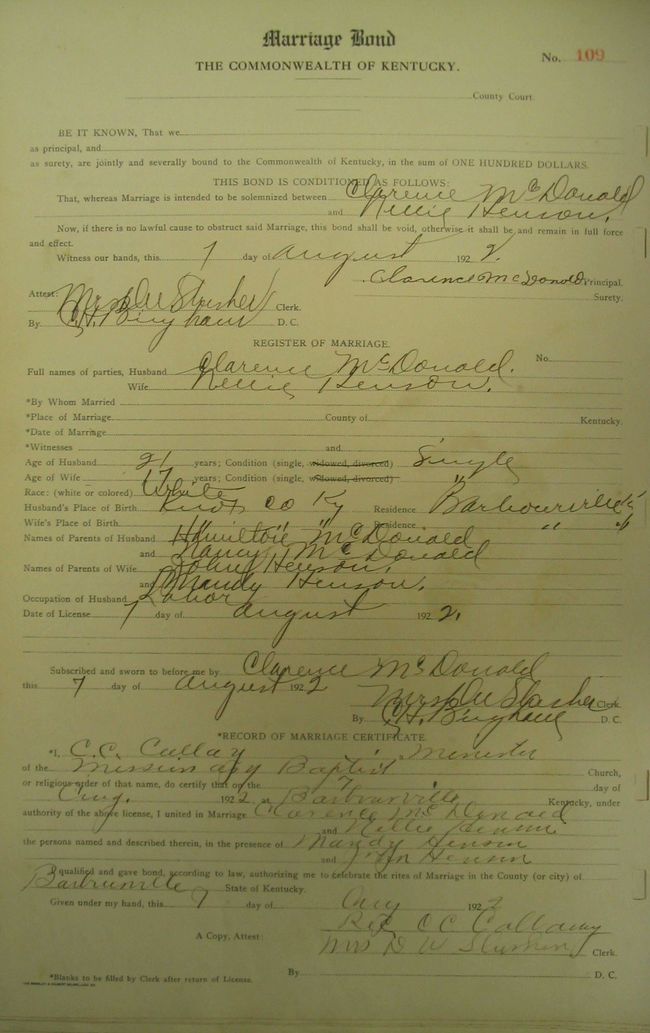 Marriage Bond
No. 109
THE COMMONWEALTH OF KENTUCKY.
County Court.
BE IT KNOWN, That we
as principal, and
as surety, are jointly and severally bound to the Commonwealth of Kentucky, in the sum of ONE HUNDRED DOLLARS.
THIS BOND IS CONDITIONED AS FOLLOWS:
That, whereas Marriage is intended to be solemnized between Clarence McDonald
and Nellie Henson.
Now, if there is no lawful cause to obstruct said Marriage, this bond shall be void, otherwise it shall be and remain in full force
and effect.
Witness our hands, this 7 day of August 1922.
Clarence McDonald Principal.
Surety.
Attest: Mrs D W Slusher Clerk.
By C.H. Bingham D. C.
REGISTER OF MARRIAGE.
No.
Full names of parties, Husband Clarence McDonald.
Wife Nellie Henson.
*By Whom Married
*Place of Marriage County of Kentucky.
*Date of Marriage
*Witnesses and
Age of Husband 21 years; Condition (single, widowed, divorced) Single
Age of Wife 17 years; Condition (single, widowed, divorced) "
Race: (white or colored) White
Husband's Place of Birth Knox Co Ky Residence Barbourville
Wife's Place of Birth " " Residence " "
Names of Parents of Husband McDonald
and Nancy McDonald
Names of Parents of Wife John Henson,
and Mandy Henson.
Occupation of Husband Labor
Date of License 7 day of August 1922.
Subscribed and sworn to before me by Clarence McDonald
this 7 day of August 1922
Mrs D W Slusher Clerk
By C.H. Bingham D. C.
*RECORD OF MARRIAGE CERTIFICATE.
*I, C.C. Callay Minister
of the Missionary Baptist Church,
or religious order of that name, do certify that on the 7 day of
Aug. 1922 at Barbourville Kentucky, under
authority of the above license, I united in Marriage Clarence McDonald
and Nellie Henson
the persons named and described therein, in the presence of Mandy Henson
and John Henson
I qualified and gave bond, according to law, authorizing me to celebrate the rites of Marriage in the County (or city) of
Barbourville State of Kentucky.
Given under my hand, this 7 day of Aug 1922
Rev C C Callaway
A Copy, Attest: Mrs D W Slusher Clerk.
By D. C.
*Blanks to be filled by Clerk after return of License.